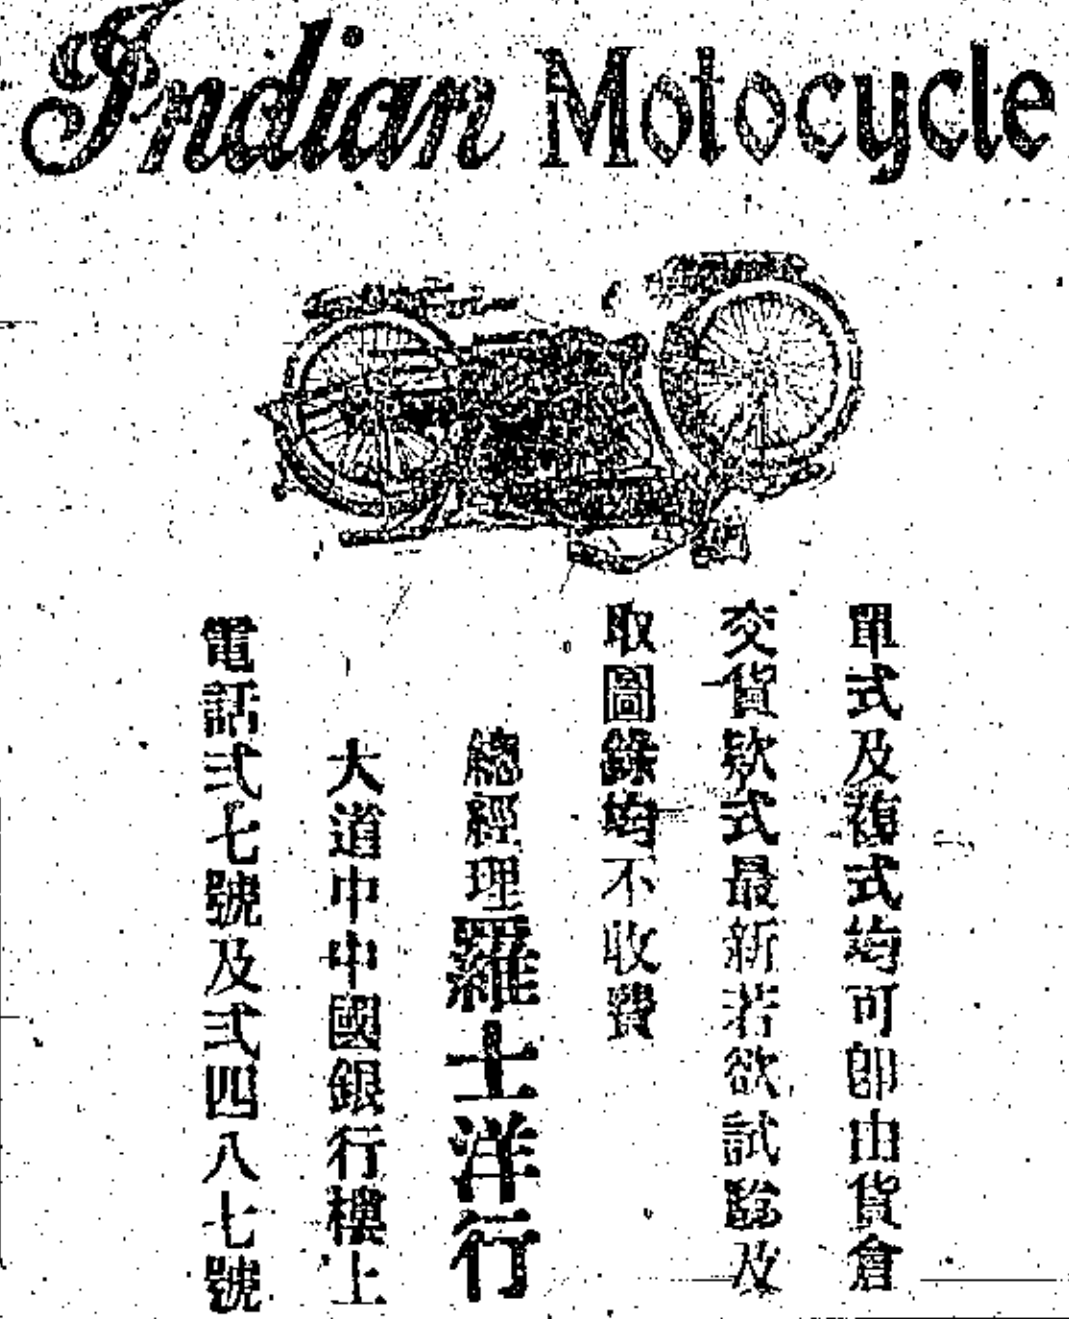 Indian Motocycle
單式及複式均可卽由貨倉
交貨欵式最新若欲試驗及
取圖錄均不收費
總經理羅士洋行
大道中中國銀行樓上
電話弍七號及弍四八七號